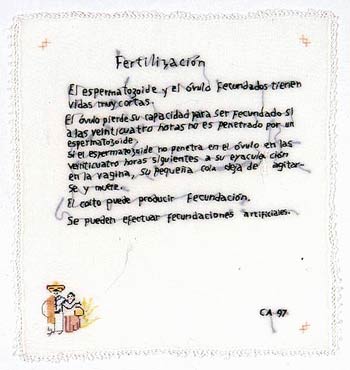 Fertilización
El espermatozoide y el óvulo fecundados tienen
vidas muy cortas.
El óvulo pierde su capacidad para ser fecundado si
a las veinticuatro horas no es penetrado por un
espermatozoide.
Si el espermatozoide no penetra en el óvulo en las
veinticuatro horas siguientes a su eyaculación
en la vagina, su pequeña cola deja de agitar-
se y muere.
El coito puede producir fecundación.
Se pueden efectuar fecundaciones artificiales.
CA 97